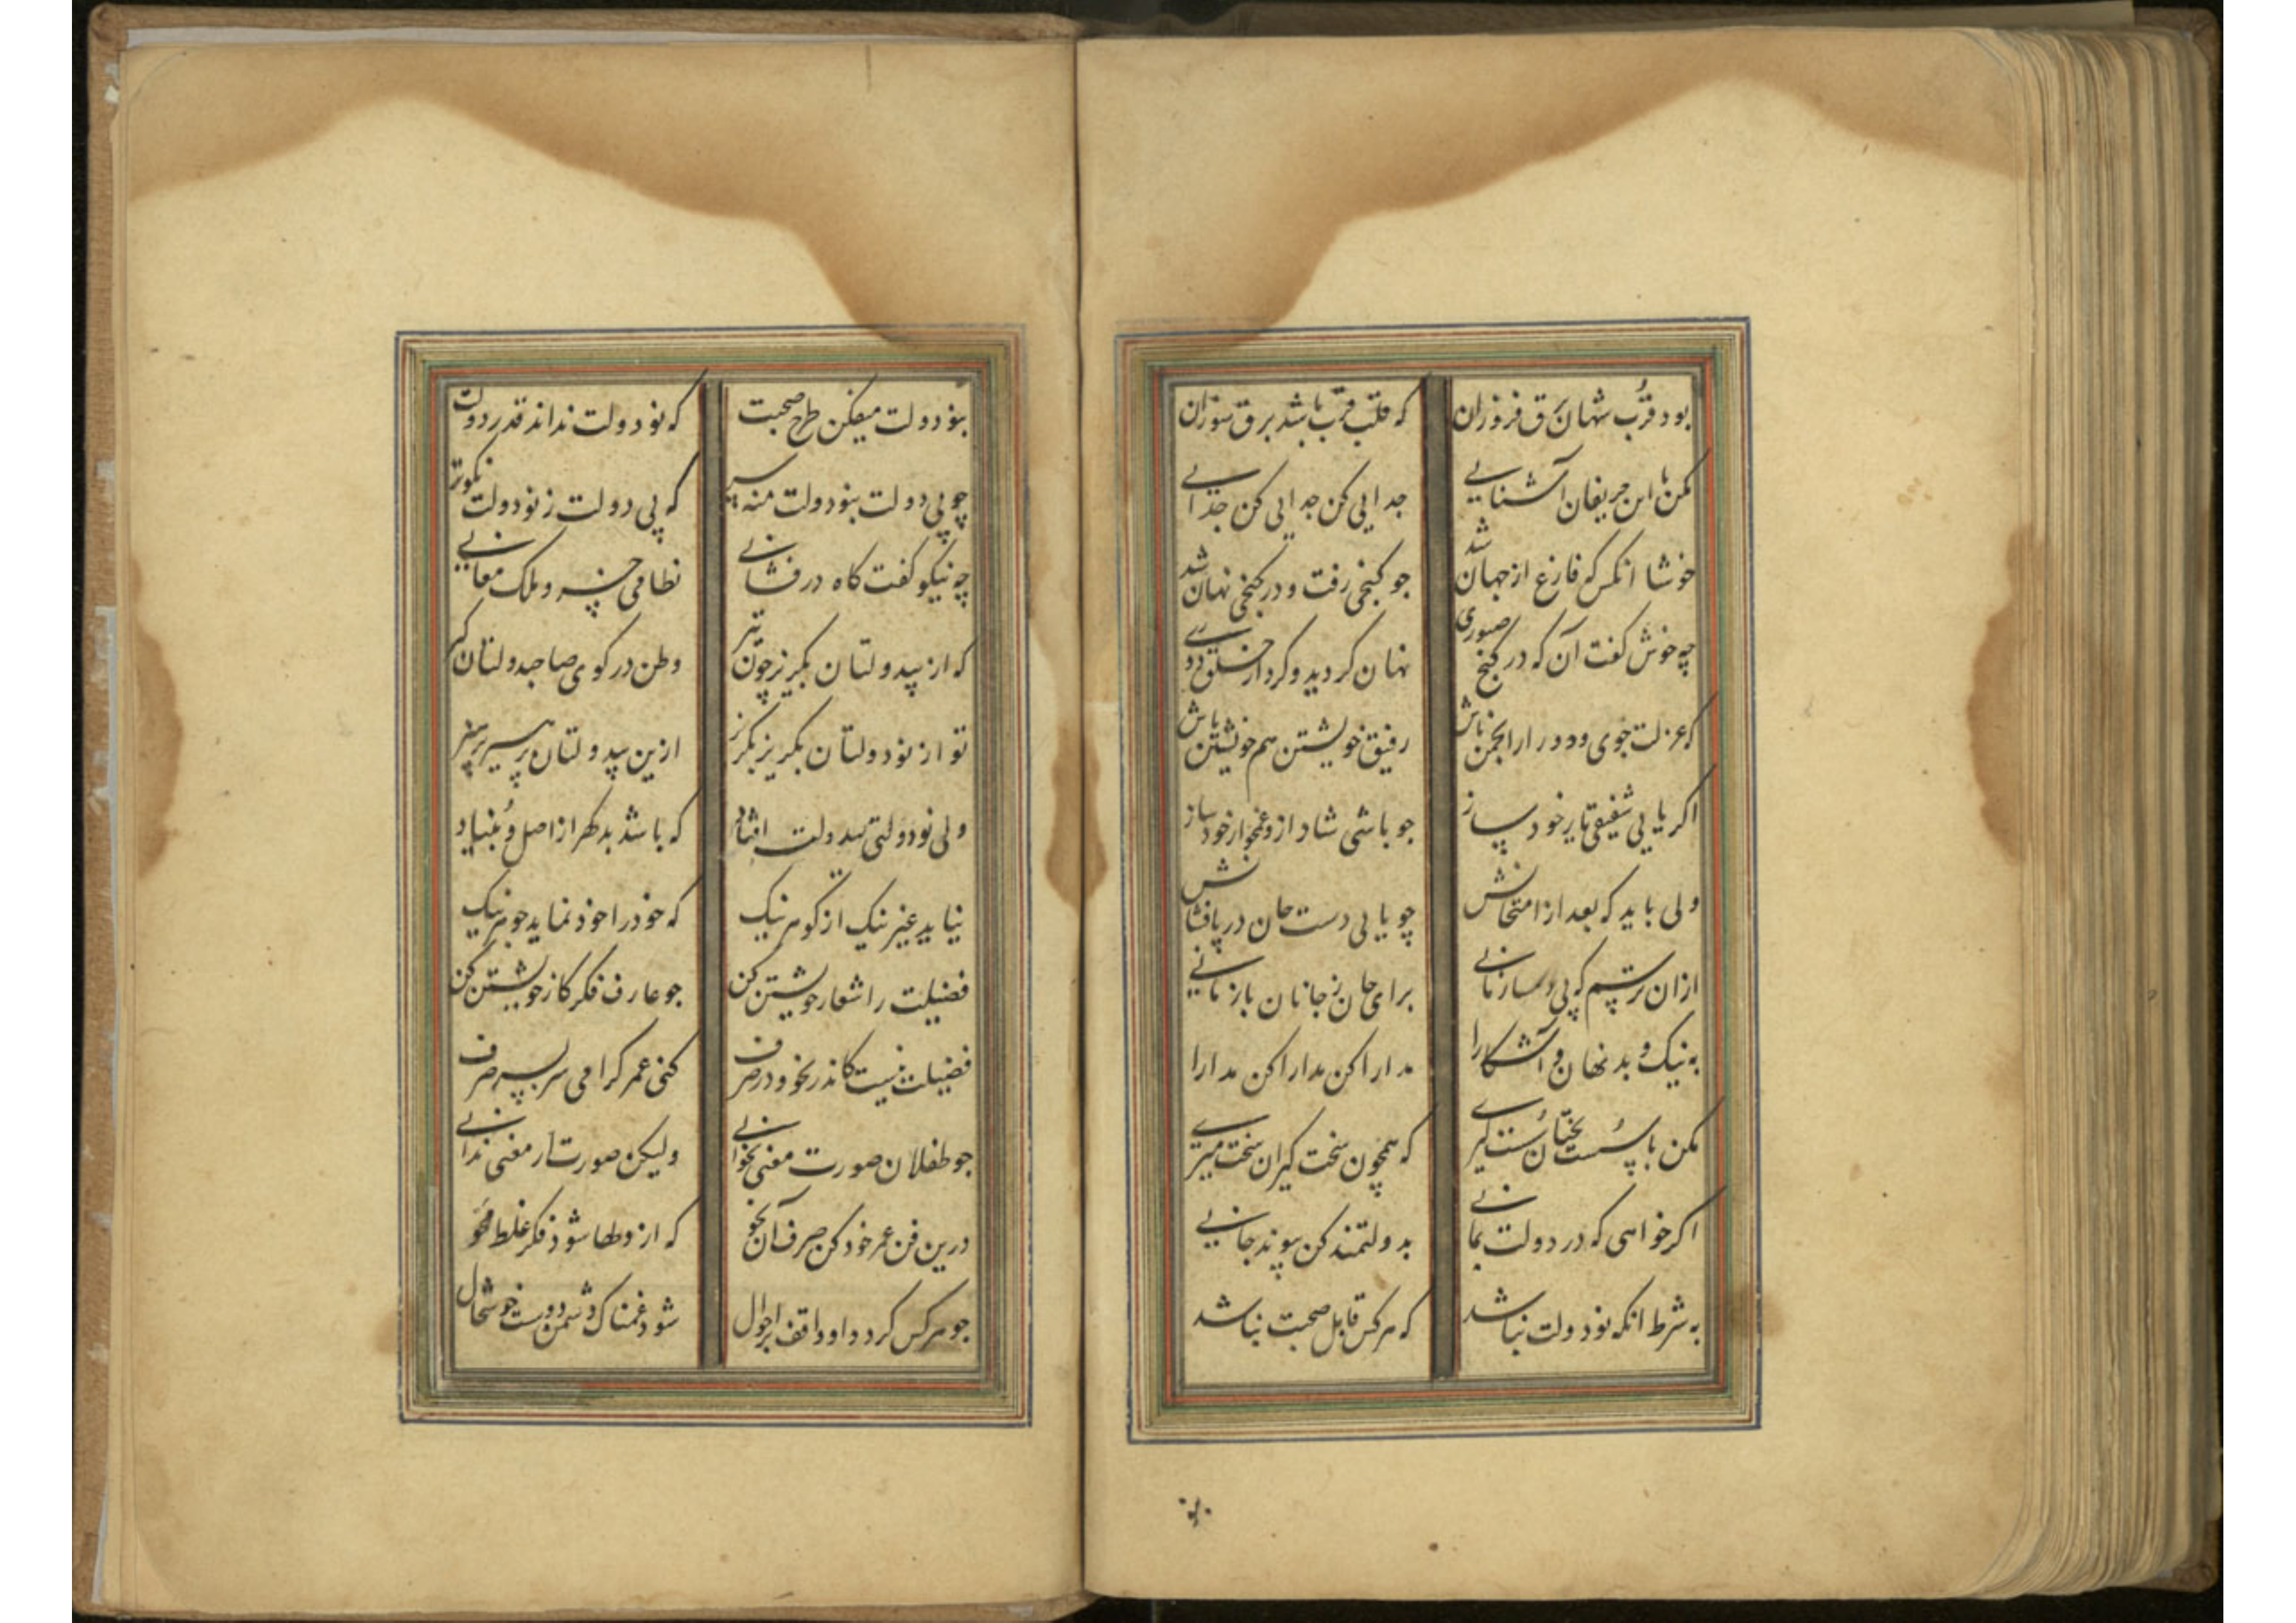 بود قرب شهان برق فروزان که قلب قرب باشد برق سوزان
مکن با این حریفان آشنایی جدایی کن جدایی کن جدایی
خوشا انکس که فارغ از جهان شد جو کنجی رفت و در کنجی نهان شد
چه خوش کفت آن که در کنج صبوری نهان کردید و کرد از خلق دوری
که عزلت جوی و دور از انجمن باش رفیق خویشتن هم خویشتن باش
اکر یابی شفیقی یار خود ساز جو باشی شاد ازو غمخوار خود ساز
ولی باید که بعد از امتحانش چو یابی دست جان در پا فشانش
ازان ترسم که بی دمساز مانی برای جان ز جانان باز مانی
به نیک و بد نهان و آشکارا مدارا کن مدارا کن مدارا
مکن با سست بختان سست کیری که همچون سخت کیران سخت میری
اکر خواهی که در دولت بمانی بدولتمند کن پیوند جانی
به شرط انکه نودولت نباشد که هرکس قابل صحبت نباشد
بنودولت میفکن طرح صحبت که نودولت نداند قدر دولت
چو بی دولت بنودولت منه سر که بی دولت ز نودولت نکوتر
چه نیکو کفت کاه درفشانی نظامی خسرو ملک معانی
که از بیدولتان بکریز چون تیر وطن در کوی صاحبدولتان کیر
تو از نودولتان بکریز بکریز ازین بیدولتان پرهیز پرهیز
ولی نودولتی بیدولت افتاد که باشد بدکهر از اصل و بنیاد
نیاید غیر نیک از کوهر نیک که خود را خود نماید جوهر نیک
فضیلت را شعار خویشتن کن جو عارف فکر کار خویشتن کن
فضیلت نیست کاندر نحو و در صرف کنی عمر کرامی سر بسر صرف
جو طفلان صورت معنی بخوانی ولیکن صورت از معنی ندانی
درین فن عمر خود کن صرف آن نحو که از وطها شود فکر غلط محو
جو هرکس کردد او واقف بر احوال شود غمناک دشمن دوست خوشحال